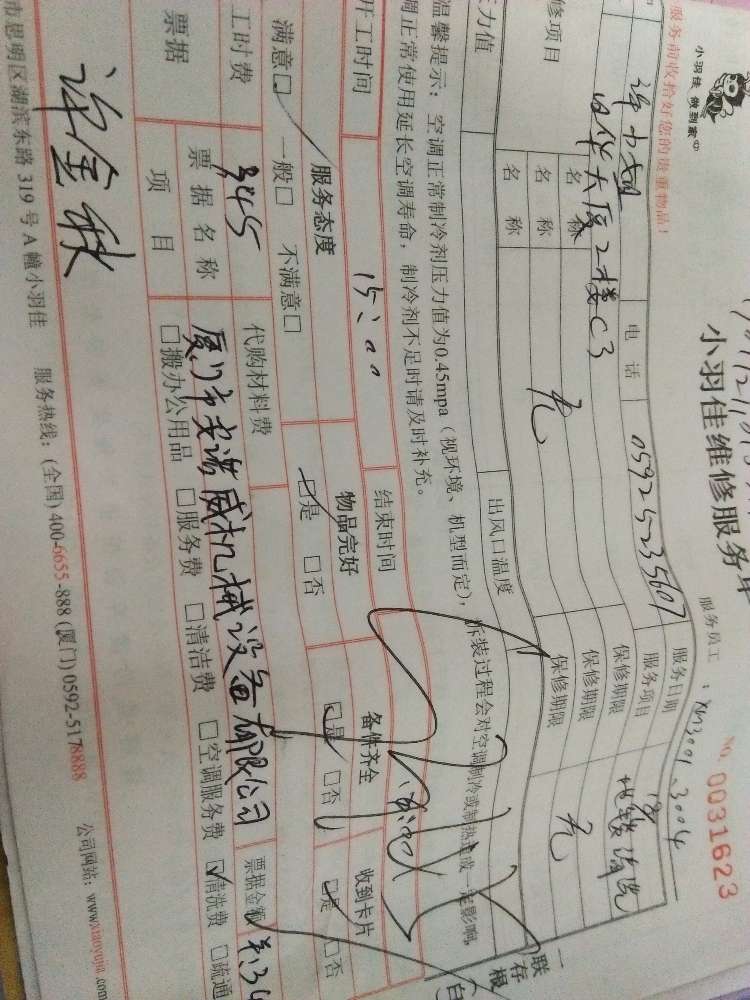 小羽佳 做到家
小羽佳维修服务单
NO. 0031623
服务前收拾好您的贵重物品!
服务员工: XM3001.3004
电话 05925235607 服务日期
大厦2楼C3 服务项目
修项目 名称 保修期限
名称 无 保修期限 无
名称 保修期限
压力值 出风口温度
温馨提示:空调正常制冷剂压力值为0.45mpa(视环境、机型而定),拆装过程会对空调制冷或制热造成一定影响,
调正常使用延长空调寿命,制冷剂不足时请及时补充。
开工时间 15:00 结束时间
服务态度 物品完好 备件齐全 收到卡片
满意☑ 一般□ 不满意□ ☑是 □否 ☑是 □否 ☑是 □否
工时费 345 代购材料费
票据 票据名称 厦门市安诺威机械设备有限公司 票据金额
项目 □搬办公用品 □服务费 □清洁费 □空调服务费 ☑清洗费 □疏通
许金秋
市思明区湖滨东路319号A幢小羽佳 服务热线:(全国)400-6655-888(厦门)0592-5178888 公司网站:www.xiaoyujia.com
一联存根